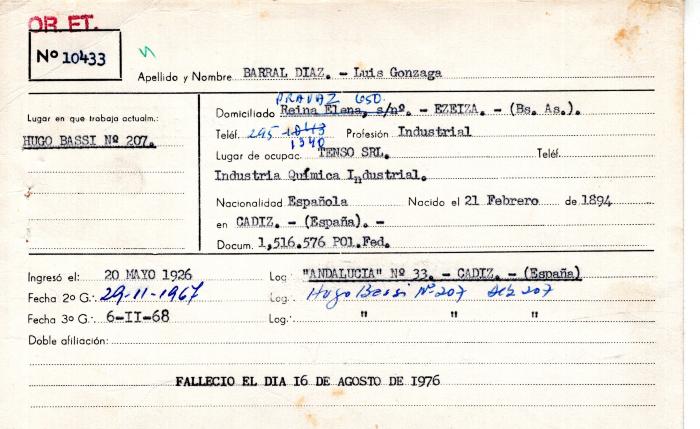 OR. ET.
Nº 10433
Apellido y Nombre BARRAL DIAZ. - Luis Gonzaga
PRAVAZ 650
Lugar en que trabaja actualm.:
HUGO BASSI Nº 207.
Domiciliado Reina Elena, s/nº. - EZEIZA. - (Bs. As.).
Teléf. 295 1340 Profesión Industrial
Lugar de ocupac. TENSO SRL. Teléf.
Industria Química Industrial.
Nacionalidad Española Nacido el 21 Febrero de 1894
en CADIZ. - (España). -
Docum. 1,516.576 POl.Fed.
Ingresó el: 20 MAYO 1926 Log∴ "ANDALUCIA" Nº 33. - CADIZ. - (España)
Fecha 2º G∴ 29-11-1967 Log∴ Hugo Bassi Nº 207
Fecha 3º G∴ 6-II-68 Log∴ " " "
Doble afiliación:
FALLECIO EL DIA 16 DE AGOSTO DE 1976